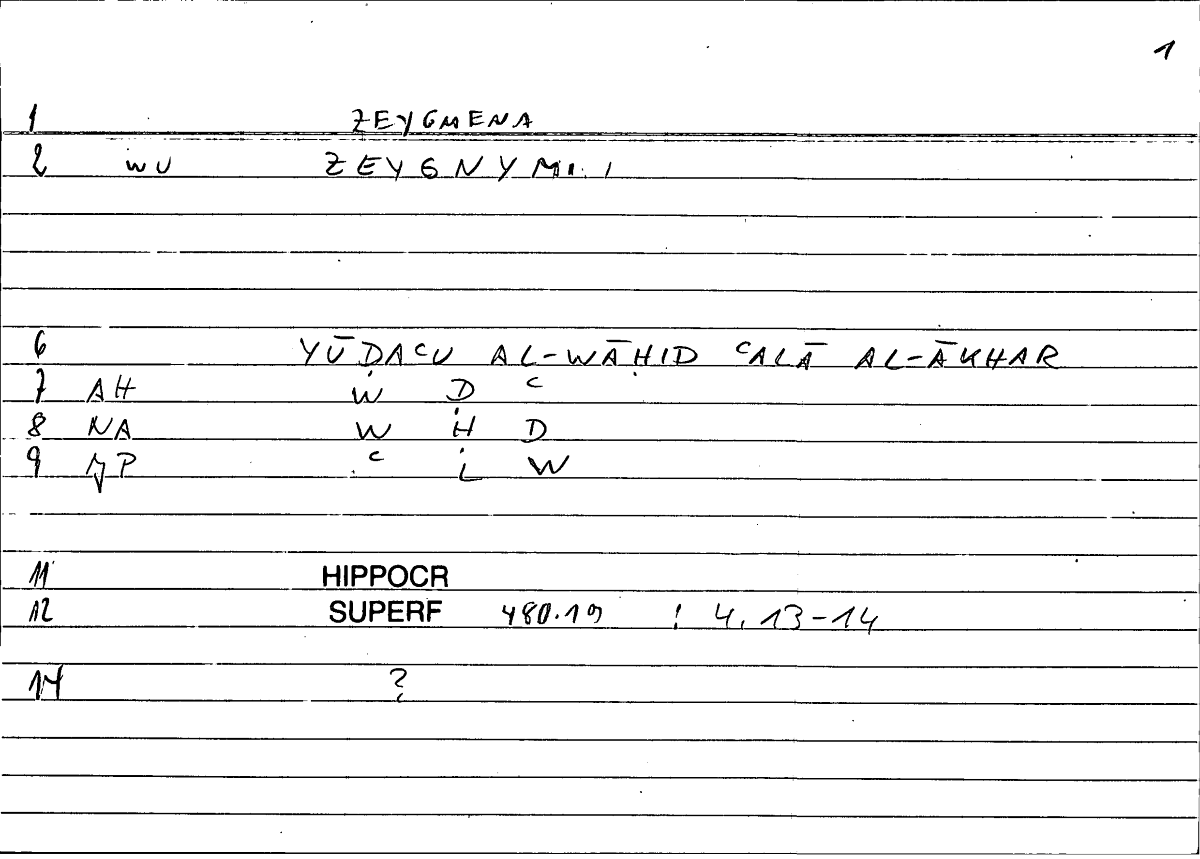 1
1 ZEYGMENA
2 WU ZEYGNYMI. I
6 YŪḌAᶜU AL-WĀḤID ᶜALĀ AL-ĀKHAR
7 AH W Ḍ ᶜ
8 NA W Ḥ D
9 P ᶜ L W
11 HIPPOCR
12 SUPERF 480.19 : 4, 13-14
14 ?